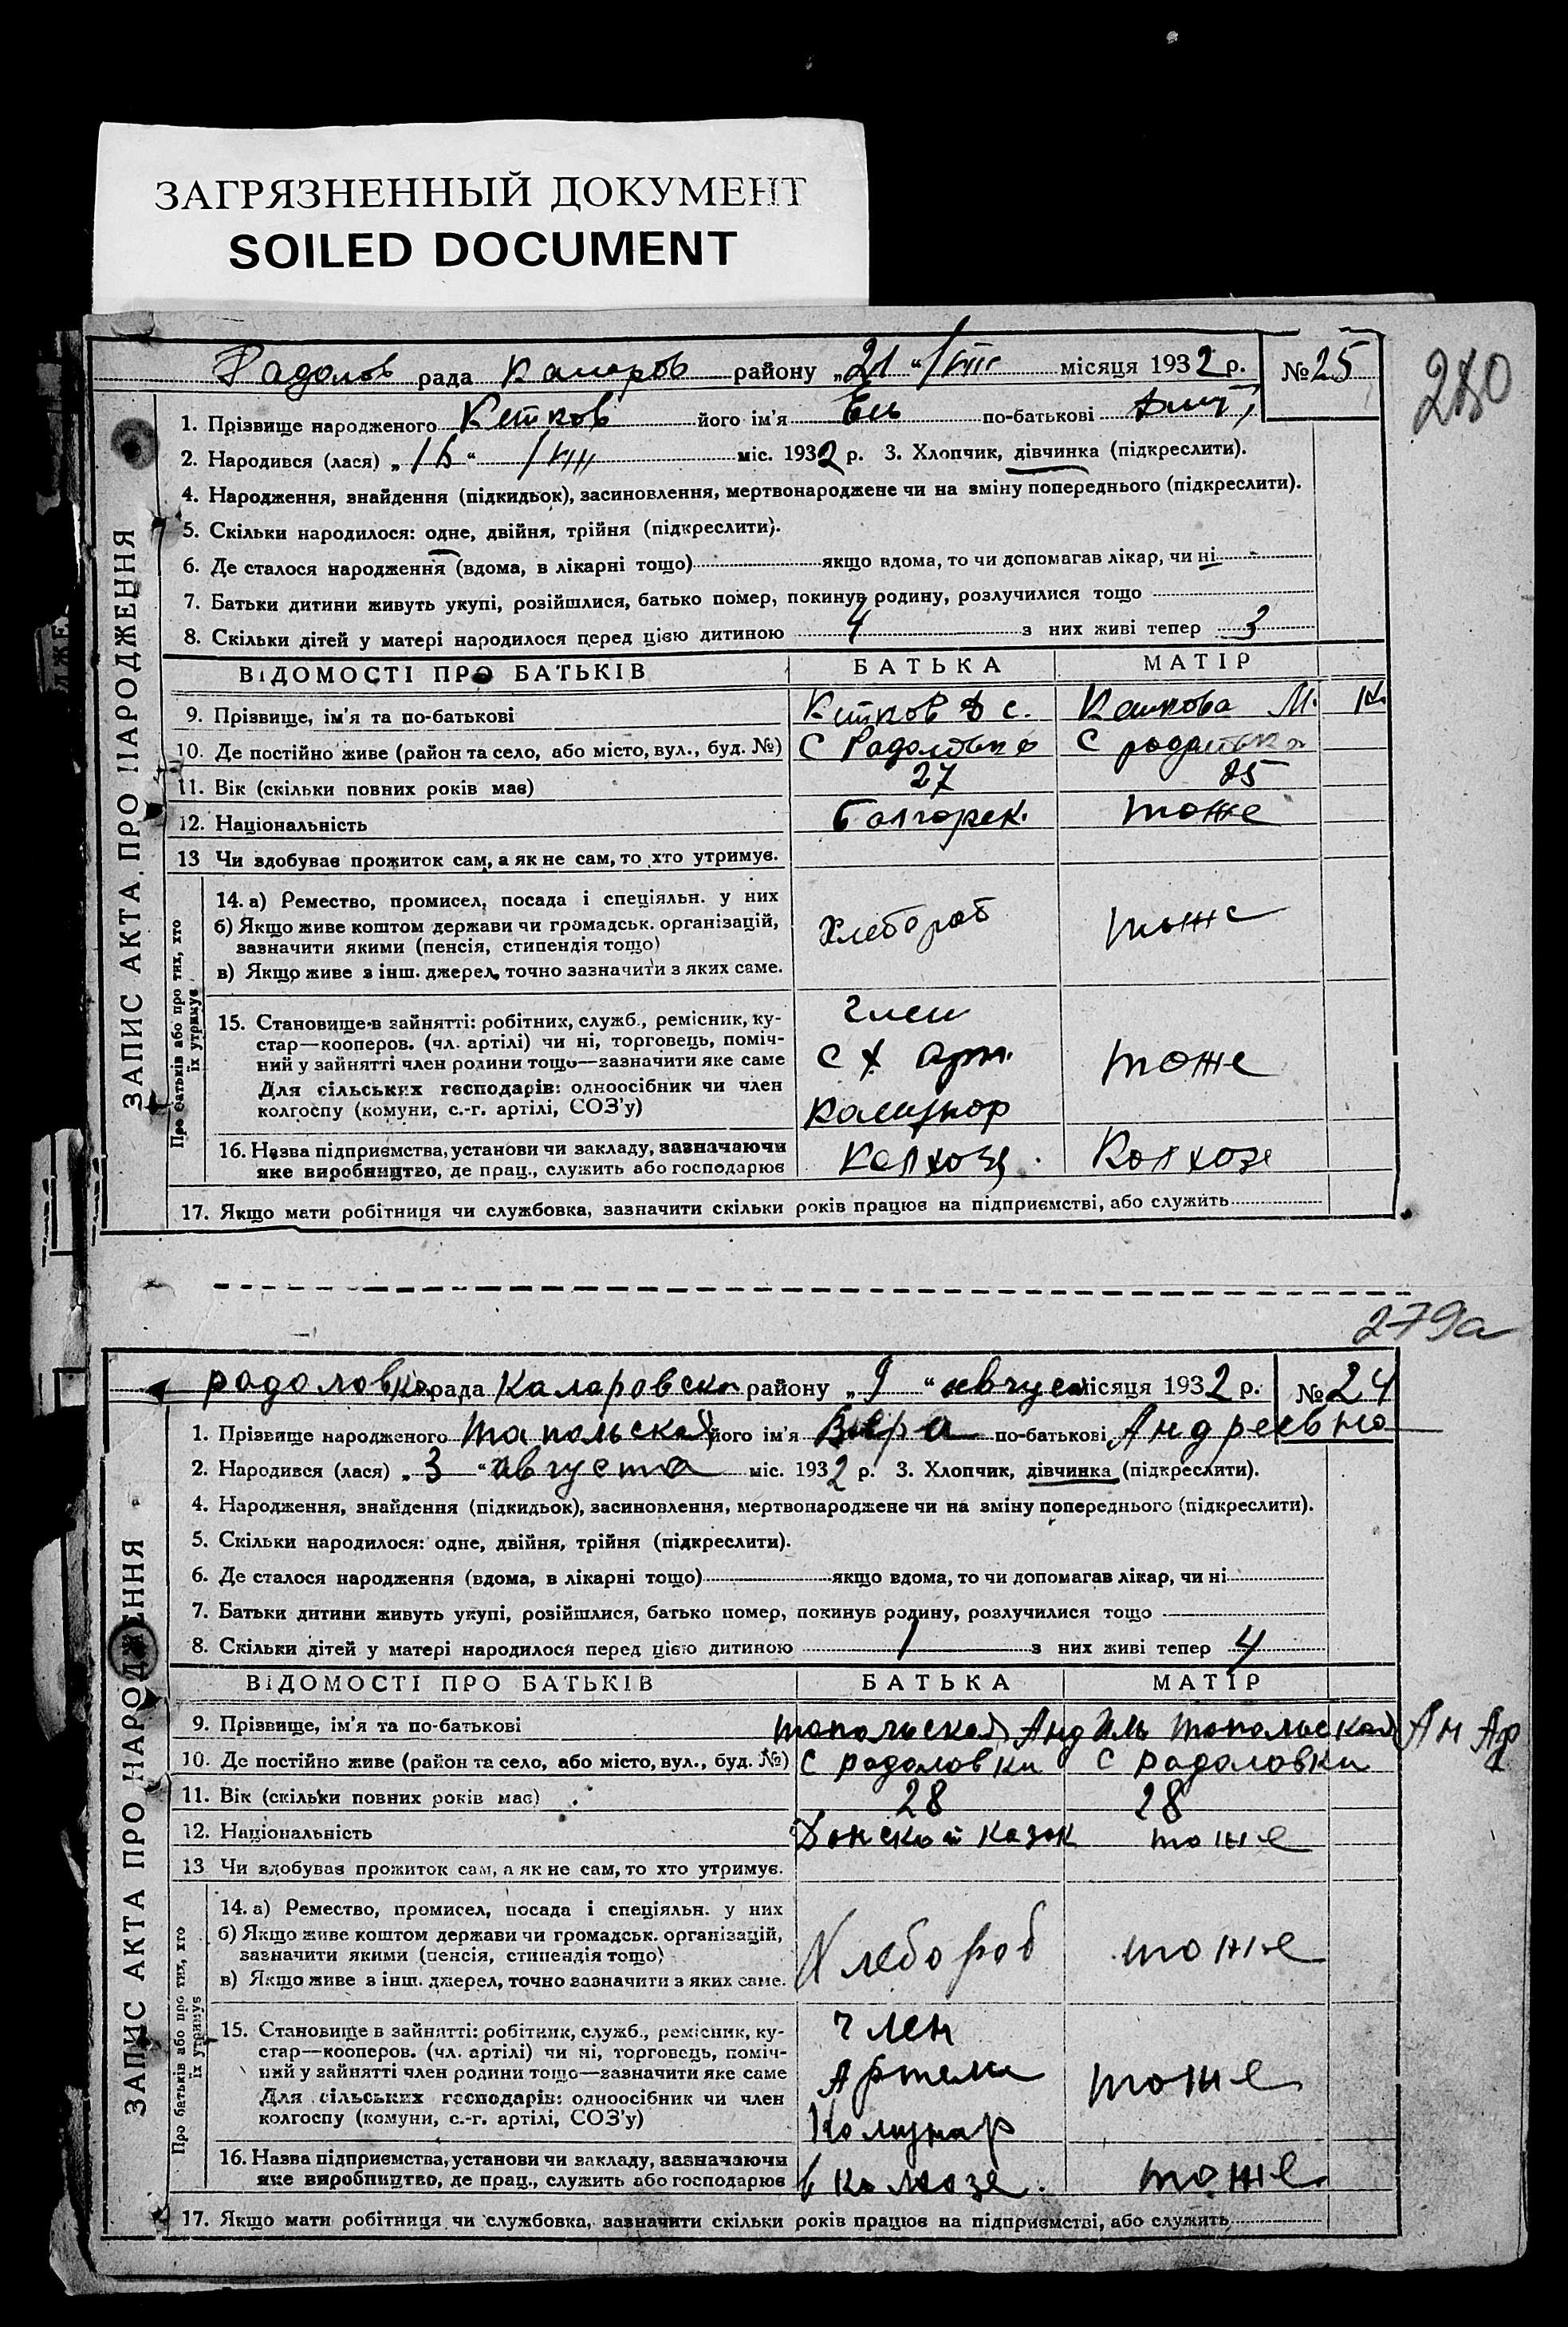 ЗАГРЯЗНЕННЫЙ ДОКУМЕНТ
SOILED DOCUMENT
280
ЗАПИС АКТА ПРО НАРОДЖЕННЯ
Радолов рада района району „21“ /VIII місяця 1932 р. №25
1. Прізвище народженого Кетков його ім'я по-батькові
2. Народився (лася) „ “ /VIII міс. 1932 р. 3. Хлопчик, дівчинка (підкреслити).
4. Народження, знайдення (підкидьок), засиновлення, мертвонароджене чи на зміну попереднього (підкреслити).
5. Скільки народилося: одне, двійня, трійня (підкреслити).
6. Де сталося народження (вдома, в лікарні тощо) якщо вдома, то чи допомагав лікар, чи ні
7. Батьки дитини живуть укупі, розійшлися, батько помер, покинув родину, розлучилися тощо
8. Скільки дітей у матері народилося перед цією дитиною 4 з них живі тепер 3
ВІДОМОСТІ ПРО БАТЬКІВ БАТЬКА МАТІР
9. Прізвище, ім'я та по-батькові Кетков Д с. М.
10. Де постійно живе (район та село, або місто, вул., буд. №) С Радоловка С радоловка
11. Вік (скільки повних років має) 27 25
12. Національність Болгарск. тоже
13 Чи здобував прожиток сам, а як не сам, то хто утримує.
Про батьків або про тих, хто їх утримує
14. а) Ремество, промисел, посада і спеціяльн. у них
б) Якщо живе коштом держави чи громадськ. організацій,
зазначити якими (пенсія, стипендія тощо) Хлебороб тоже
в) Якщо живе з інш. джерел, точно зазначити з яких саме.
15. Становище в зайнятті: робітник, служб., ремісник, ку- член
стар—кооперов. (чл. артілі) чи ні, торговець, поміч- с х арт.
ний у зайнятті член родини тощо—зазначити яке саме тоже
Для сільських господарів: одноосібник чи член
колгоспу (комуни, с.-г. артілі, СОЗ'у) комунар
16. Назва підприємства, установи чи закладу, зазначаючи
яке виробництво, де прац., служить або господарює Колхозе Колхозе
17. Якщо мати робітниця чи службовка, зазначити скільки років працює на підприємстві, або служить
279а
ЗАПИС АКТА ПРО НАРОДЖЕННЯ
радоловка рада Каларовска району „9“ августа місяця 1932 р. №24
1. Прізвище народженого Топольская його ім'я Вера по-батькові Андреевна
2. Народився (лася) „3“ августа міс. 1932 р. 3. Хлопчик, дівчинка (підкреслити).
4. Народження, знайдення (підкидьок), засиновлення, мертвонароджене чи на зміну попереднього (підкреслити).
5. Скільки народилося: одне, двійня, трійня (підкреслити).
6. Де сталося народження (вдома, в лікарні тощо) якщо вдома, то чи допомагав лікар, чи ні
7. Батьки дитини живуть укупі, розійшлися, батько помер, покинув родину, розлучилися тощо
8. Скільки дітей у матері народилося перед цією дитиною 1 з них живі тепер 4
ВІДОМОСТІ ПРО БАТЬКІВ БАТЬКА МАТІР
9. Прізвище, ім'я та по-батькові топольской Анд Иль топольская Ан
10. Де постійно живе (район та село, або місто, вул., буд. №) с радоловки с радоловки
11. Вік (скільки повних років має) 28 28
12. Національність Донской казак тоже
13 Чи здобував прожиток сам, а як не сам, то хто утримує.
Про батьків або про тих, хто їх утримує
14. а) Ремество, промисел, посада і спеціяльн. у них
б) Якщо живе коштом держави чи громадськ. організацій,
зазначити якими (пенсія, стипендія тощо) Хлебороб тоже
в) Якщо живе з інш. джерел, точно зазначити з яких саме.
15. Становище в зайнятті: робітник, служб., ремісник, ку- член
стар—кооперов. (чл. артілі) чи ні, торговець, поміч-
ний у зайнятті член родини тощо—зазначити яке саме Артели тоже
Для сільських господарів: одноосібник чи член
колгоспу (комуни, с.-г. артілі, СОЗ'у) Комунар
16. Назва підприємства, установи чи закладу, зазначаючи
яке виробництво, де прац., служить або господарює в колхозе. тоже
17. Якщо мати робітниця чи службовка, зазначити скільки років працює на підприємстві, або служить